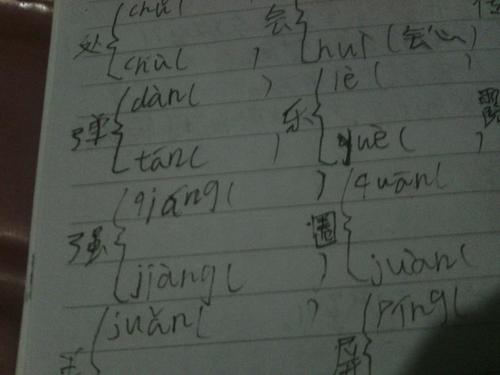 处 chǔ(
chù( )
会
huì(会心)
弹 dàn( )
tán( )
乐 lè( )
yuè( )
强 qiáng( )
jiàng( )
圈 quān(
juàn(
juǎn( )
屏 píng(